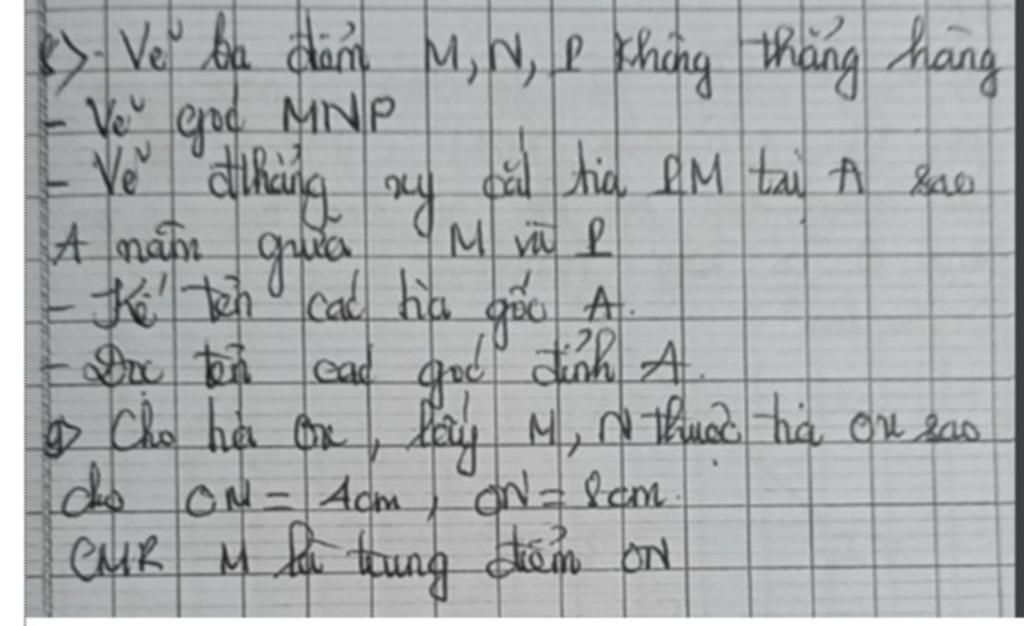 8) - Vẽ ba điểm M, N, P không thẳng hàng
- Vẽ góc MNP
- Vẽ đthẳng xy cắt tia PM tại A sao
A nằm giữa M và P
- Kể tên các tia gốc A.
- Đọc tên các góc đỉnh A.
9) Cho tia Ox, lấy M, N thuộc tia Ox sao
cho OM = 4cm, ON = 8cm.
CMR M là trung điểm ON